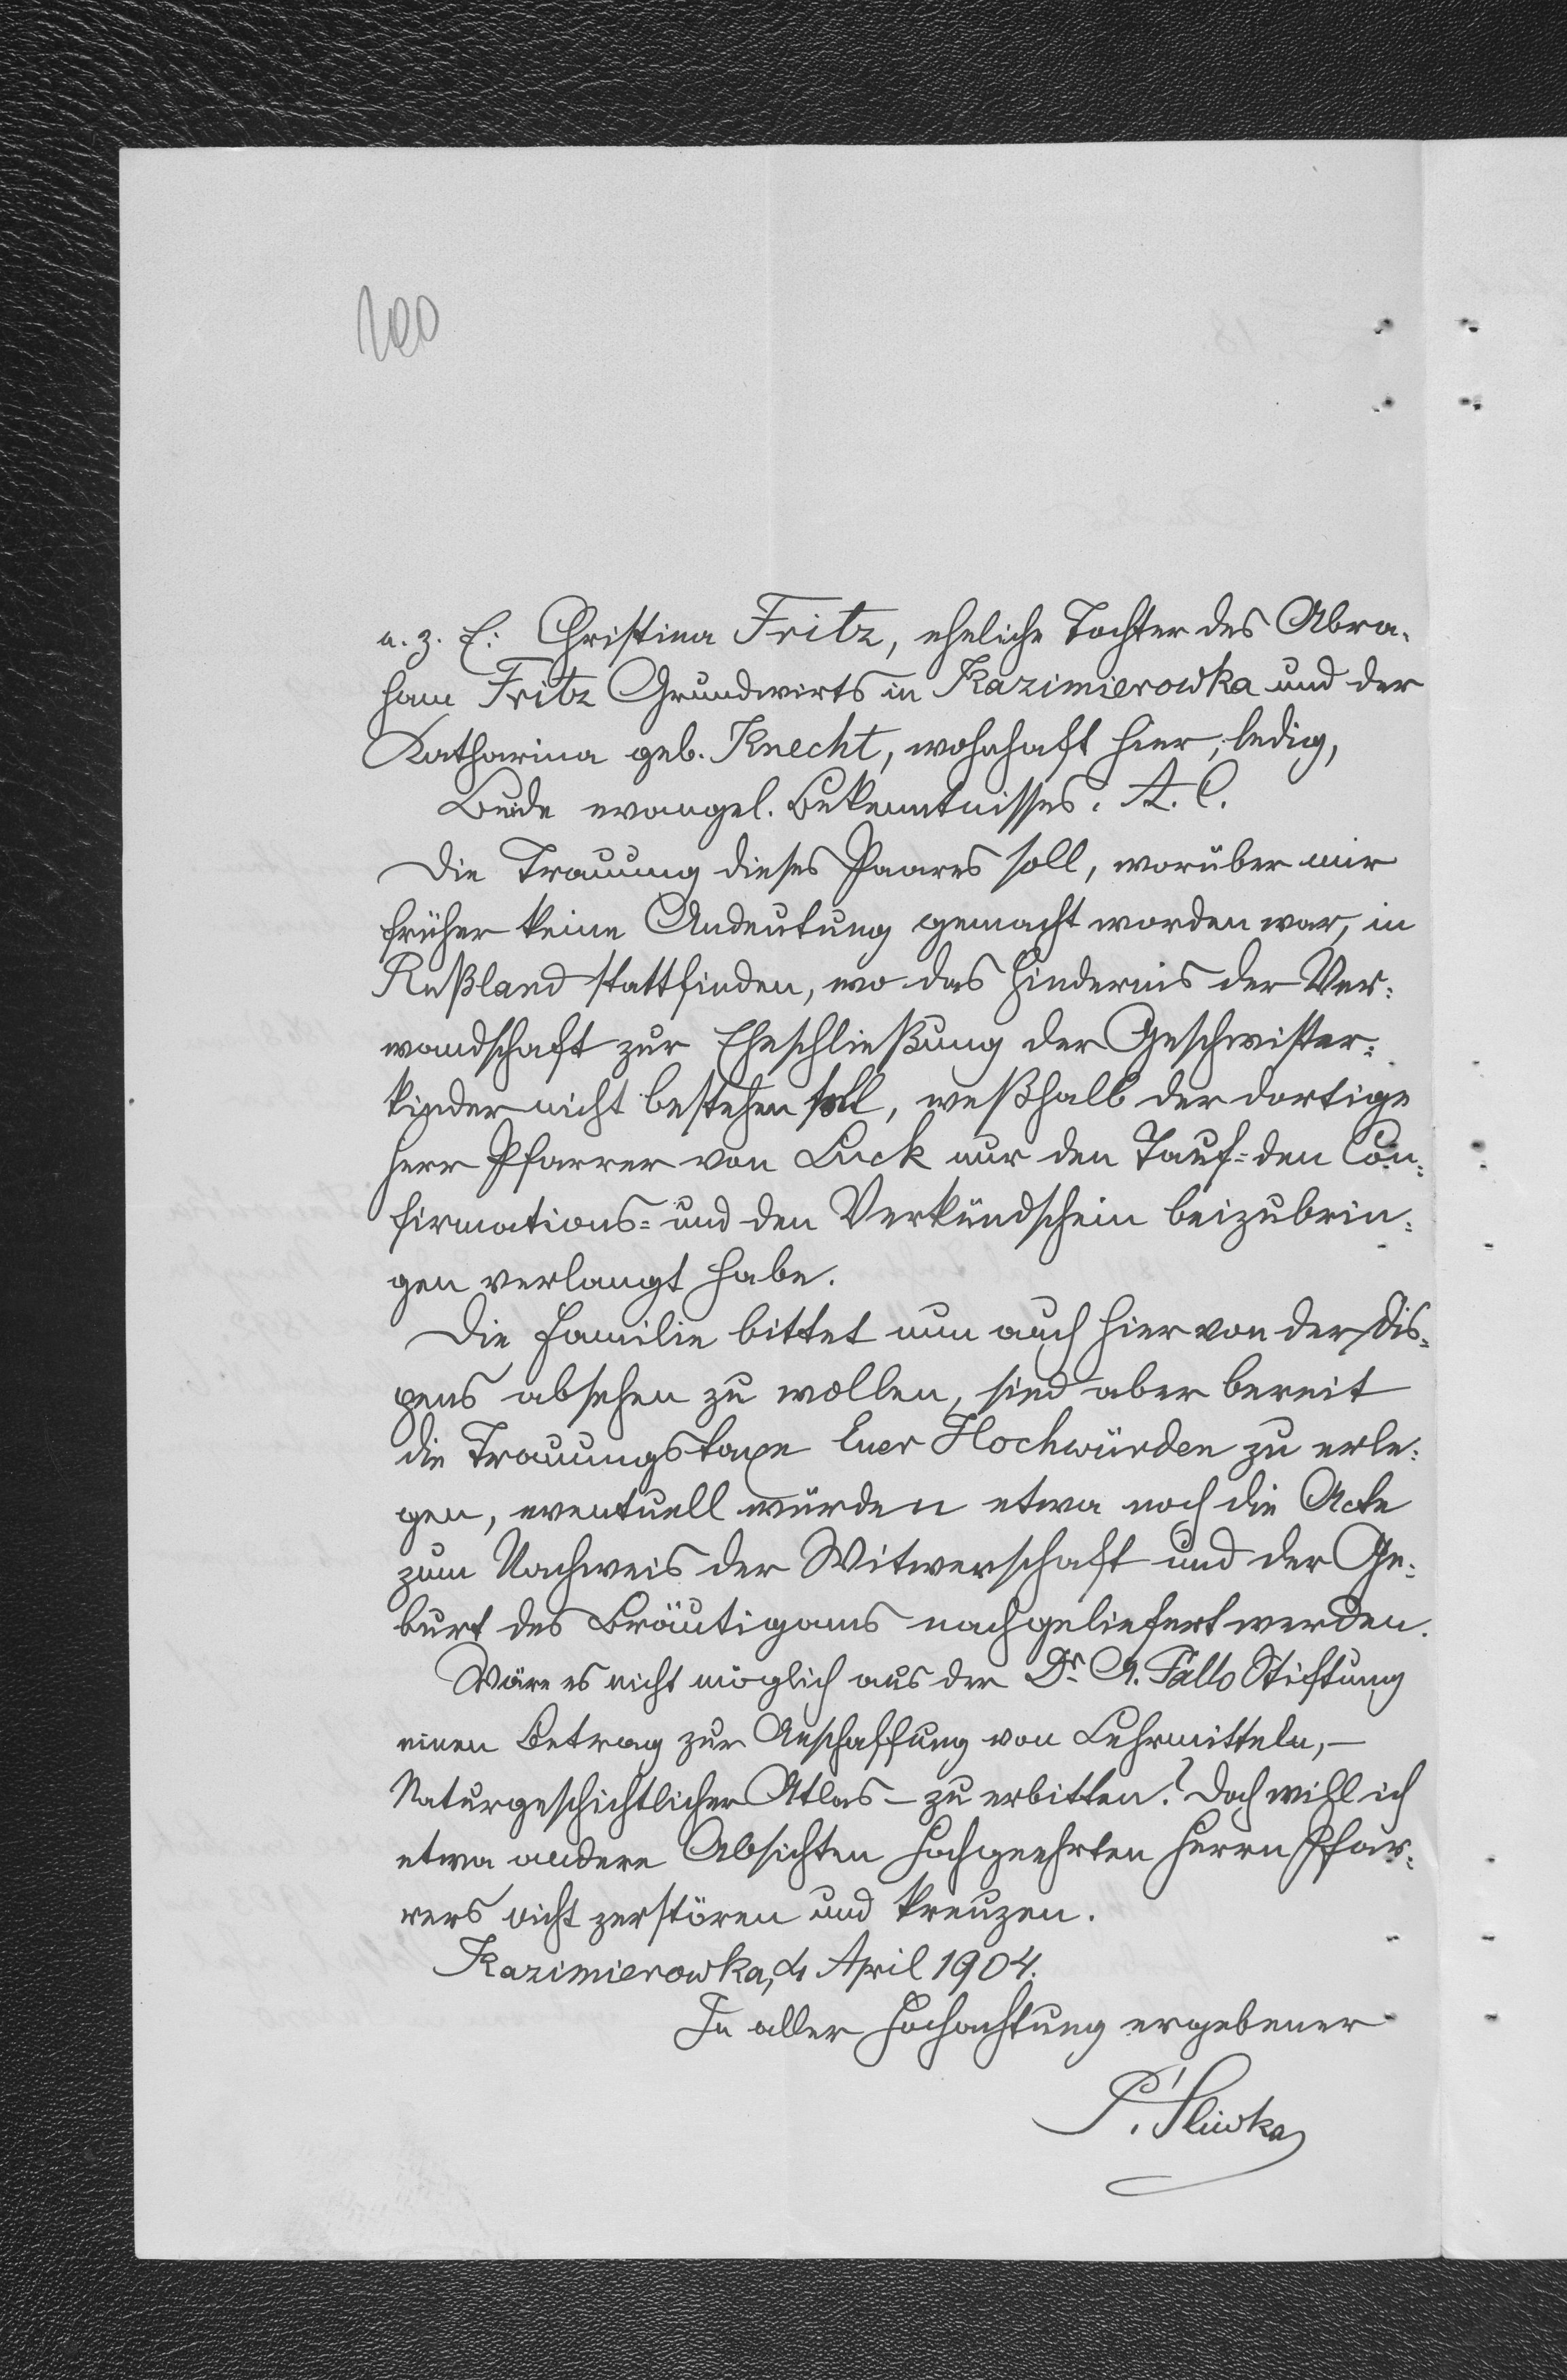 100
u. z. E: Christina Fritz, eheliche Tochter des Abra-
ham Fritz Grundwirts in Kazimierowka und der
Katharina geb. Knecht, wohnhaft hier, ledig,
Beide evangel. Bekenntnisses. A. C.
Die Trauung dieses Paares soll, worüber mir
früher keine Andeutung gemacht worden war, in
Rußland stattfinden, wo das Hindernis der Ver-
wandschaft zur Eheschließung der Geschwister-
kinder nicht bestehen soll, weßhalb der dortige
Herr Pfarrer von Luck nur den Tauf- den Con-
firmations- und den Verkündschein beizubrin-
gen verlangt habe.
Die Familie bittet nun auch hier von der Dis-
pens absehen zu wollen, sind aber bereit
die Trauungstaxe Euer Hochwürden zu erle-
gen, eventuell würden etwa noch die Acte
zum Nachweis der Witwerschaft und der Ge-
burt des Bräutigams nachgeliefert werden.
Wäre es nicht möglich aus der Dr. A. Stiftung
einen Betrag zur Anschaffung von Lehrmitteln, –
Naturgeschichtlicher Atlas – zu erbitten? Doch will ich
etwa andere Absichten hochgeehrten Herrn Pfar-
rers nicht zerstören und kreuzen.
Kazimierowka, April 1904.
In aller Hochachtung ergebener
P. Śliwka